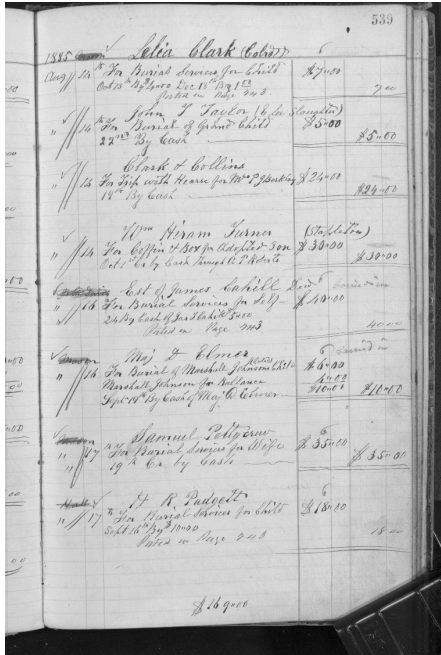 539
1885 Lelia Clark (Colrd) 6
Aug 14th For Burial Services for Child $7.00
Oct 15th By 400 Dec 16th By 1 7.00
Posted on Page 243
John T Taylor (E Lee Slaughter)
" 14th For Burial of Grand Child $5.00
22nd By Cash $5.00
Clark & Collins
" 14 For Trip with Hearse for Mrs P J Berkley $24.00
19th By Cash $24.00
Wm Hiram Turner (Stapleton)
" 14 For Coffin & Box for Adopted Son $30.00
Oct 1st Cr by Cash through A. P. Roberts $30.00
Est of James Cahill Decd 6 buried in
" 16 For Burial Services for Self $40.00
24 By Cash of Jas Cahill 5.00 40.00
Posted on Page 243
Maj D Elmer 6 buried in
" 16 For Burial of Marshall Johnsons Child $6.00
Marshall Johnson for Ballance
$10.00 $10.00
Sept 14th By Cash of Maj D Elmer
Samuel Pettgrew 6
" 17th For Burial Services for Wife $35.00
19th Cr. by Cash $35.00
H R. Padgett 6
" 17th For Burial Services for Child $18.00
Sept 16th By $10.00
Posted on Page 243 18.00
$169.00